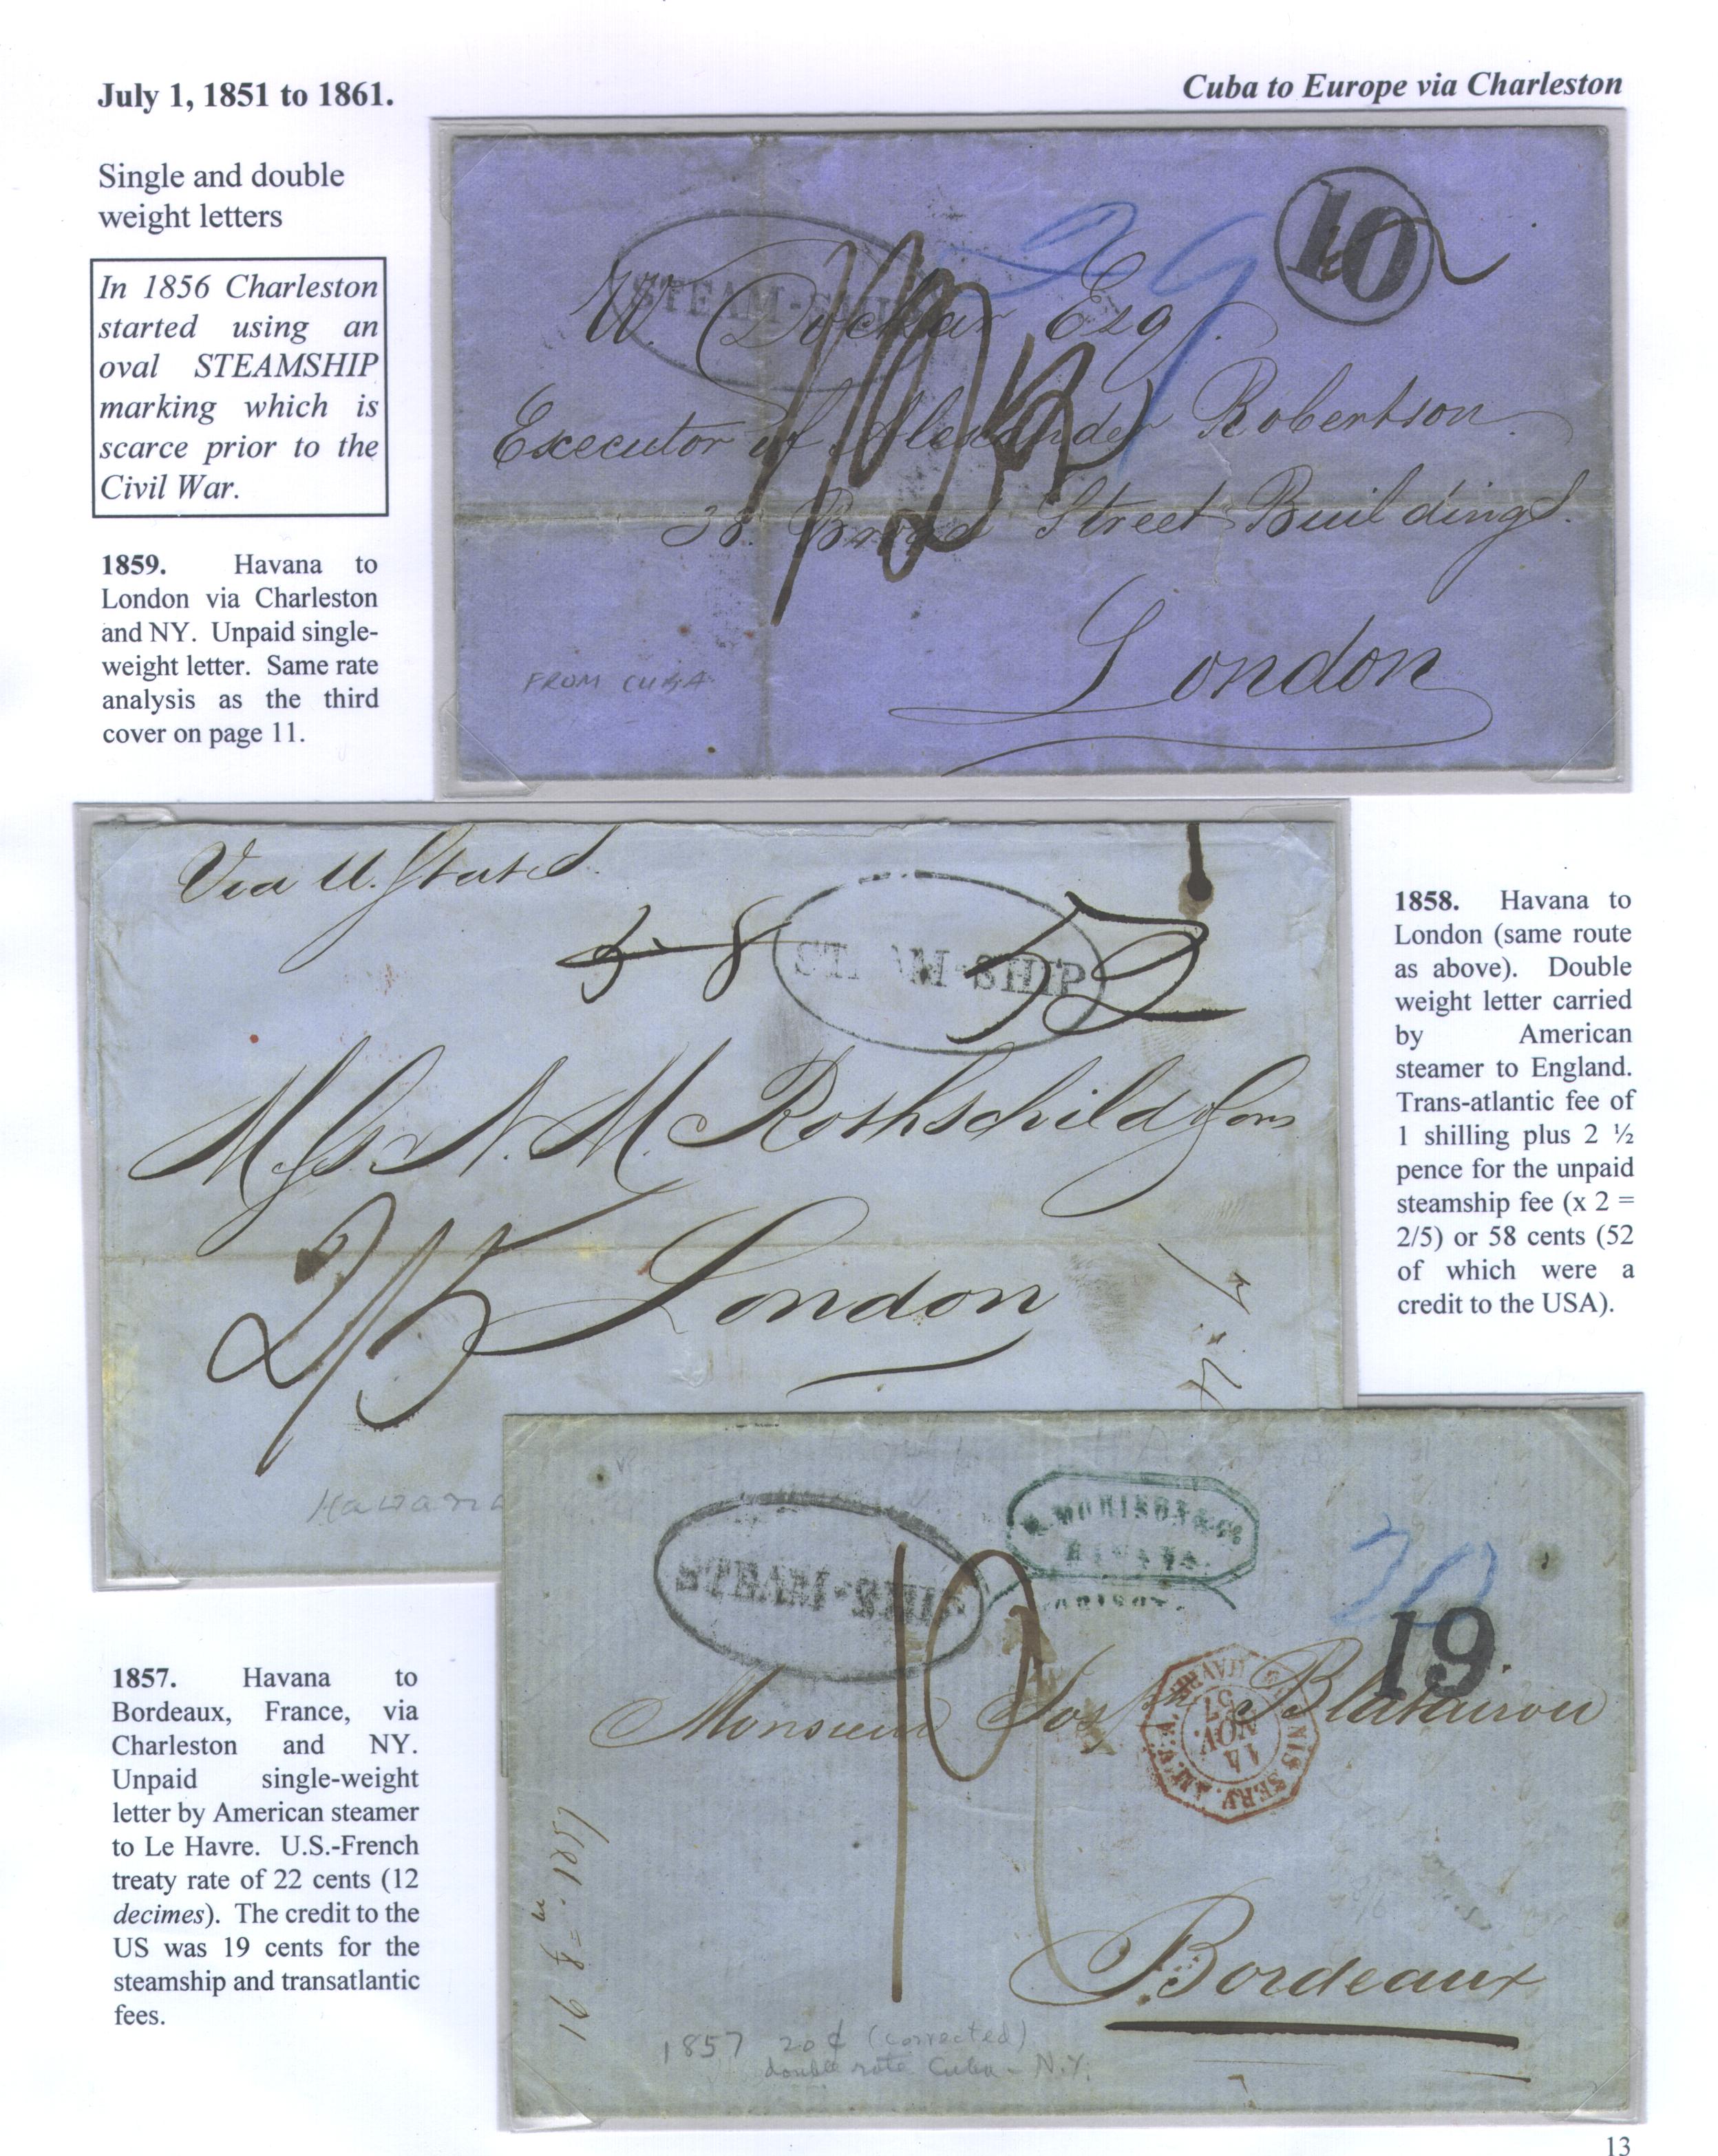 July 1, 1851 to 1861.
Cuba to Europe via Charleston
Single and double
weight letters
In 1856 Charleston
started using an
oval STEAMSHIP
marking which is
scarce prior to the
Civil War.
1859. Havana to
London via Charleston
and NY. Unpaid single-
weight letter. Same rate
analysis as the third
cover on page 11.
STEAM-SHIP
29
10
W. Dockar Esq.
Executor of Alexander Robertson
38. Broad Street Buildings.
London
FROM CUBA
Via U. States
58
STEAM-SHIP
52
Mssrs. N. M. Rothschild & Sons
2/5 London
Havana
1858. Havana to
London (same route
as above). Double
weight letter carried
by American
steamer to England.
Trans-atlantic fee of
1 shilling plus 2 ½
pence for the unpaid
steamship fee (x 2 =
2/5) or 58 cents (52
of which were a
credit to the USA).
1857. Havana to
Bordeaux, France, via
Charleston and NY.
Unpaid single-weight
letter by American steamer
to Le Havre. U.S.-French
treaty rate of 22 cents (12
decimes). The credit to the
US was 19 cents for the
steamship and transatlantic
fees.
STEAM-SHIP
MORISON & Co
HAVANA.
20
19
14
NOV.
57
SERV. AM.
HAVRE
Monsieur
Bordeaux
16 8bre. 1857
1857 20¢ (corrected)
double rate Cuba - N.Y.
13